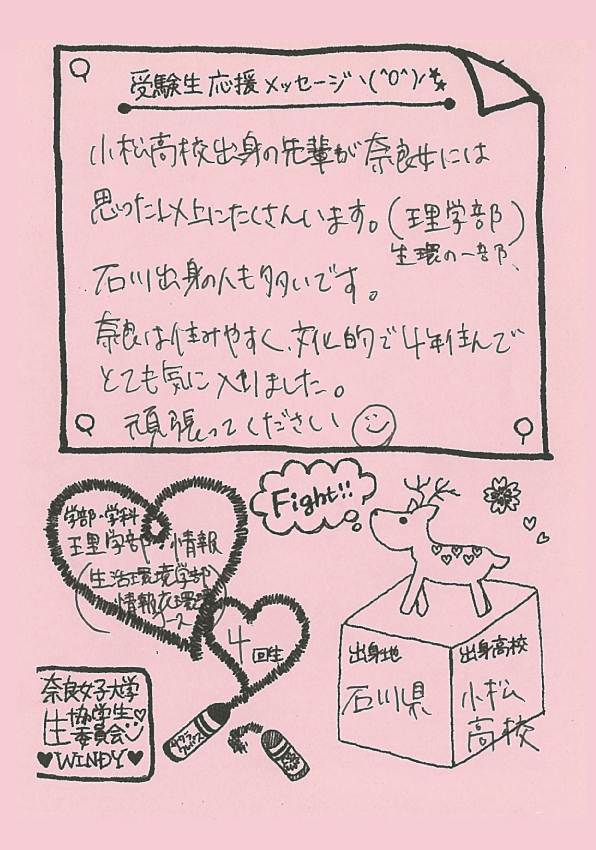 受験生応援メッセージヽ(^O^)ﾉ
小松高校出身の先輩が奈良女には
思った以上にたくさんいます。(理学部)
生環の一部、
石川出身の人も多いです。
奈良は住みやすく、文化的で4年住んで
とても気に入りました。
頑張ってください
Fight!!
学部・学科
理学部・情報
(生活環境学部)
情報衣環境
コース
4回生
サクラ
クレパス
出身地
石川県
出身高校
小松
高校
奈良女子大学
生協学生
委員会
♥WINDY♥